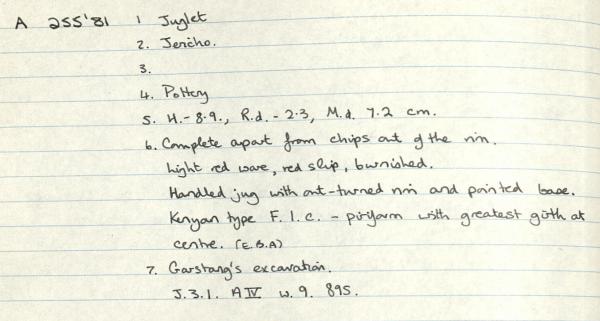 A 255'81 1 Juglet
2. Jericho.
3.
4. Pottery
5. H.-8.9., R.d.-2.3, M.d. 7.2 cm.
6. Complete apart from chips out of the rim.
Light red ware, red slip, burnished.
Handled jug with out-turned rim and pointed base.
Kenyan type F.1.c. - piriform with greatest girth at
centre. (E.B.A)
7. Garstang's excavation.
J.3.1. A IV w.9. 895.